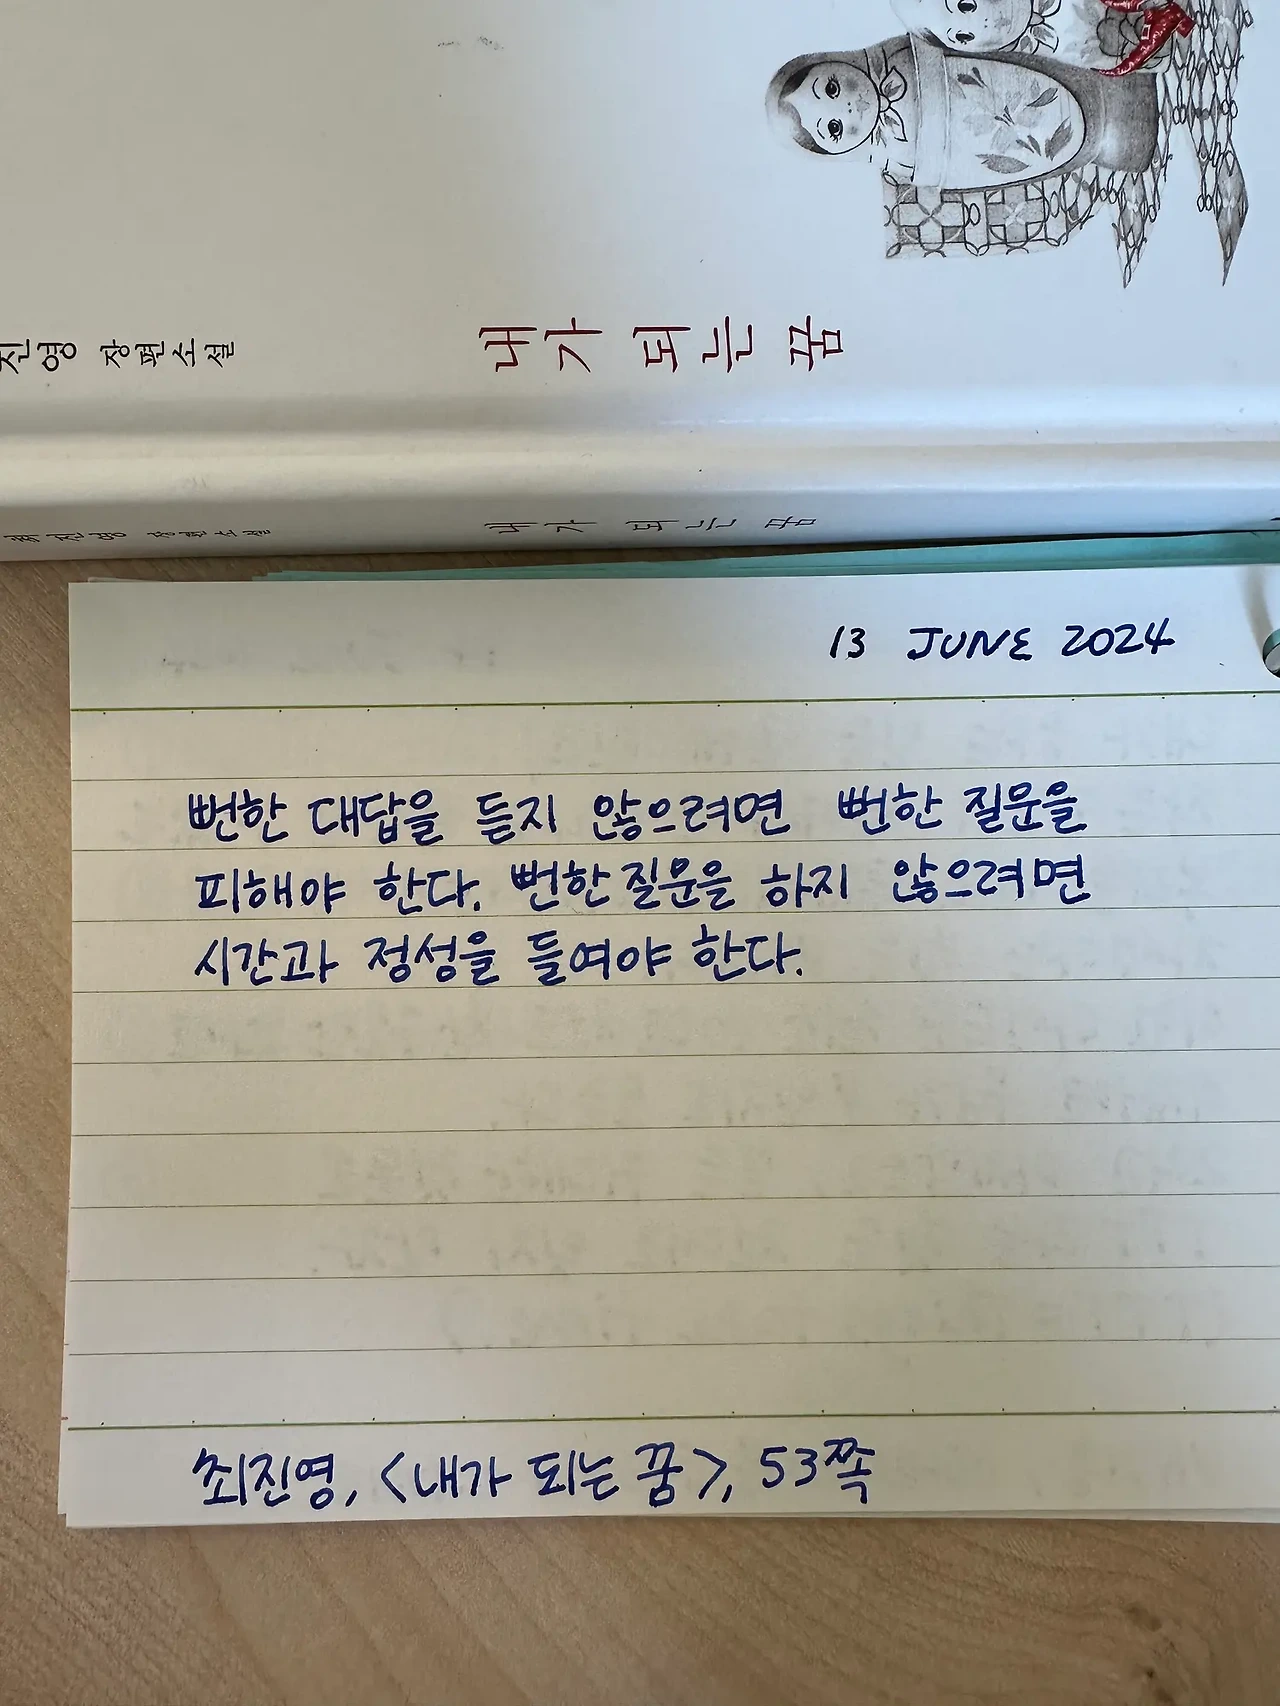 진영 장편소설
내가 되는 꿈
최진영 장편소설
내가 되는 꿈
13 JUNE 2024
뻔한 대답을 듣지 않으려면 뻔한 질문을
피해야 한다. 뻔한 질문을 하지 않으려면
시간과 정성을 들여야 한다.
최진영, <내가 되는 꿈>, 53쪽